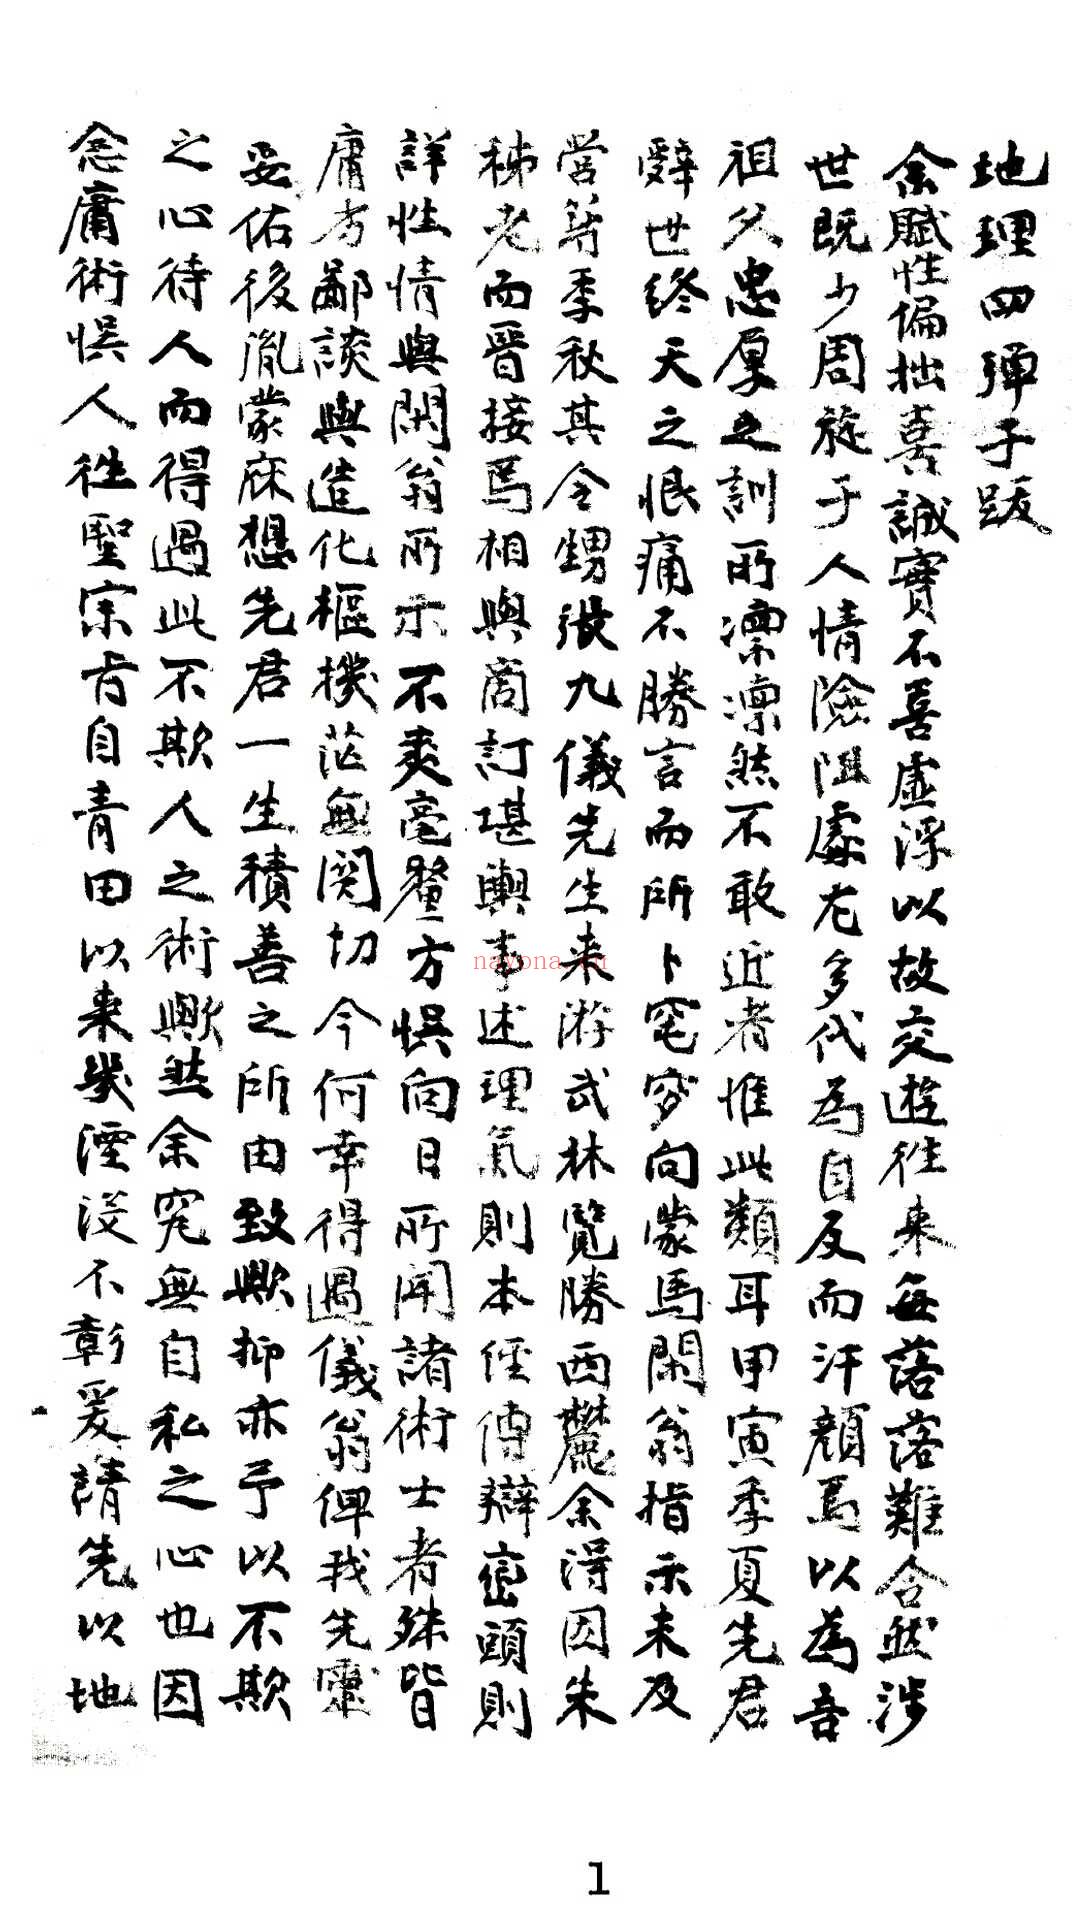 地理四弹子跋
余賦性偏拙喜誠實不喜虚浮以故交遊往来每落落難合然涉
世既少周旋于人情險阻處尤多代為自反而汗顔焉以為吾
祖父忠厚之訓所凛凛然不敢近者惟此類耳甲寅季夏先君
辭世終天之恨痛不勝言而所卜窀穸向蒙馬閑翁指示未及
營葬季秋其令甥張九儀先生来游武林覽勝西麓余得因朱
秭老而晉接焉相與商訂堪輿事述理氣則本徑傳辯巒頭則
詳性情與閑翁所示不爽毫釐方悞向日所聞諸術士者殊皆
庸夯鄙談與造化樞機茫無関切今何幸得遇儀翁俾我先靈
妥佑後胤蒙庥想先君一生積善之所由致歟抑亦予以不欺
之心待人而得遇此不欺人之術歟然余究無自私之心也因
念庸術悞人往聖宗肯自青田以来幾湮没不彰爰請先以地
nayona.cn
1